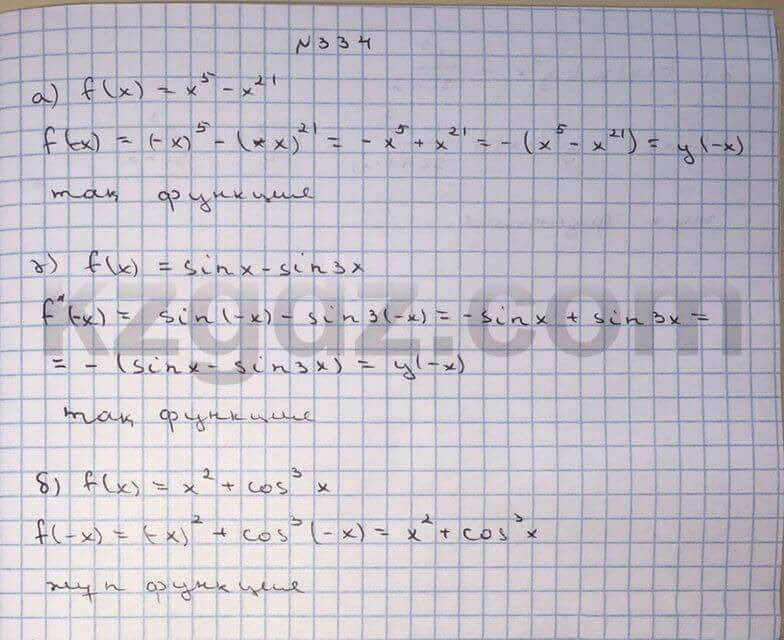 N 334
а) f(x) = x⁵ - x²¹
f(-x) = (-x)⁵ - (-x)²¹ = - x⁵ + x²¹ = - (x⁵ - x²¹) = y(-x)
тақ функция
г) f(x) = sin x - sin 3x
f(-x) = sin(-x) - sin 3(-x) = - sin x + sin 3x =
= - (sin x - sin 3x) = y(-x)
тақ функция
б) f(x) = x² + cos³ x
f(-x) = (-x)² + cos³ (-x) = x² + cos³ x
жұп функция
kzgdz.com